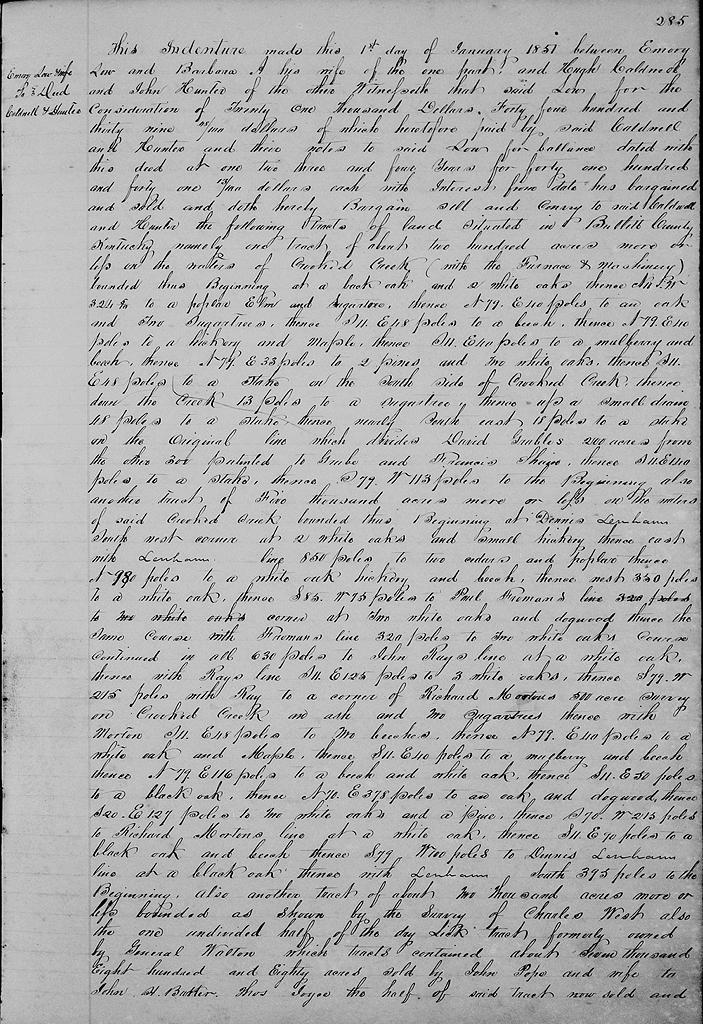 285
Emory Low & wife
To } Deed
Caldwell & Hunter
This Indenture made this 1st day of January 1851 between Emory
Low and Barbara A his wife of the one part, and Hugh Caldwell
and John Hunter of the other Witnesseth that said Low for the
Consideration of Twenty One thousand Dollars, Forty four hundred and
thirty nine /100 dollars of which heretofore paid by said Caldwell
and Hunter and three notes to said Low for ballance dated with
this deed at one two three and four Years for forty one hundred
and forty one /100 dollars each with Interest from date has bargained
and sold and doth hereby Bargain sell and Convey to said Caldwell
and Hunter the following Tracts of land situated in Bullitt County
Kentucky namely one tract of about two hundred acres more or
less on the waters of Crooked Creek (with the Furnace & Machinery)
bounded thus Beginning at a back oak and 2 white oaks thence
to a poplar Elm and sugartree, thence N 79. E 40 poles to an oak
and Two Sugartrees, thence S 11. E 48 poles to a beech, thence N 79. E 40
poles to a hickory and Maple, thence S 11. E 40 poles to a mulberry and
beech, thence N 79. E 33 poles to 2 pines and two white oaks, thence S 11.
E 48 poles to a stake on the South side of Crooked Creek thence
down the Creek 13 poles to a sugartree, thence up a small drain
48 poles to a stake thence nearly South east 18 poles to a stake
on the Original line which divides David Grables 200 acres from
the other 300 patented to Grabe and Francis thence S 11. E 140
poles to a stake, thence S 79. W 113 poles to the Beginning also
another tract of Five thousand acres more or less on the waters
of said Crooked Creek bounded thus Beginning at Dennis Lenham
South west corner at 2 white oaks and small hickory thence east
with Lenham line 850 poles to two cedars and poplar thence
N 980 poles to a white oak hickory and beech, thence west 330 poles
to a white oak, thence S 85. W 75 poles to Paul Fromans line 320 poles
to two white oaks corner at Two white oaks and dogwood thence the
Same Course with Fromans line 320 poles to Two white oaks Course
continued in all 630 poles to John Rays line at a white oak,
thence with Rays line S 11. E 125 poles to 3 white oaks, thence S 79. W
215 poles with Ray to a corner of Richard Mortons 500 acre survey
on Crooked Creek an ash and two sugartrees thence with
Morton S 11. E 48 poles to Two beeches, thence N 79. E 40 poles to a
white oak and Maple, thence S 11. E 40 poles to a mulberry and beech
thence N 79. E 116 poles to a beech and white oak, thence S 11. E 50 poles
to a black oak, thence N 70. E 378 poles to an oak and dogwood, thence
S 20. E 127 poles to Two white oaks and a pine, thence S 70. W 215 poles
to Richard Mortons line at a white oak, thence S 11 E 70 poles to a
black oak and beech thence S 79 W 700 poles to Dennis Lenham
line at a black oak thence with Lenham South 395 poles to the
Beginning, also another tract of about Two thousand acres more or
less bounded as shown by the Survey of Charles West also
the one undivided half of the dry Lick tract formerly owned
by General Walton which tracts contained about Seven thousand
Eight hundred and Eighty acres sold by John Pope and wife to
John H. Butler. Thos Joyce the half of said tract now sold and